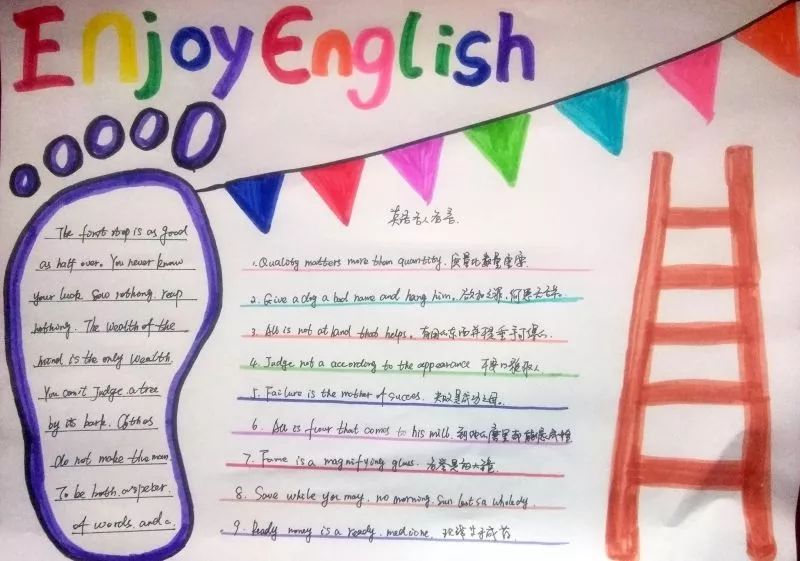 Enjoy English
The first step is as good
as half over. You never know
your luck. Sow nothong. reap
nothong. The wealth of the
mind is the only wealth.
You can't Judge a tree
by its bark. Clothes
do not make the man
To be both a speter.
of words. and a.
英语名人名言.
1. Quality matters more than quantity. 质量比数量重要.
2. Give a dog a bad name and hang him. 欲加之罪,何患无辞.
3. All is not at land that helps. 有用的东西并
4. Judge not a accordong to the appearance 不
5. Failure is the mother of succes. 失败是成功之母.
6. All is flour that comes to his mill.
7. Fame is a magnifying glass. 名誉是放大镜.
8. Save while you may, no morning. sun lasts a whole dy.
9. Ready money is a ready. medicine.